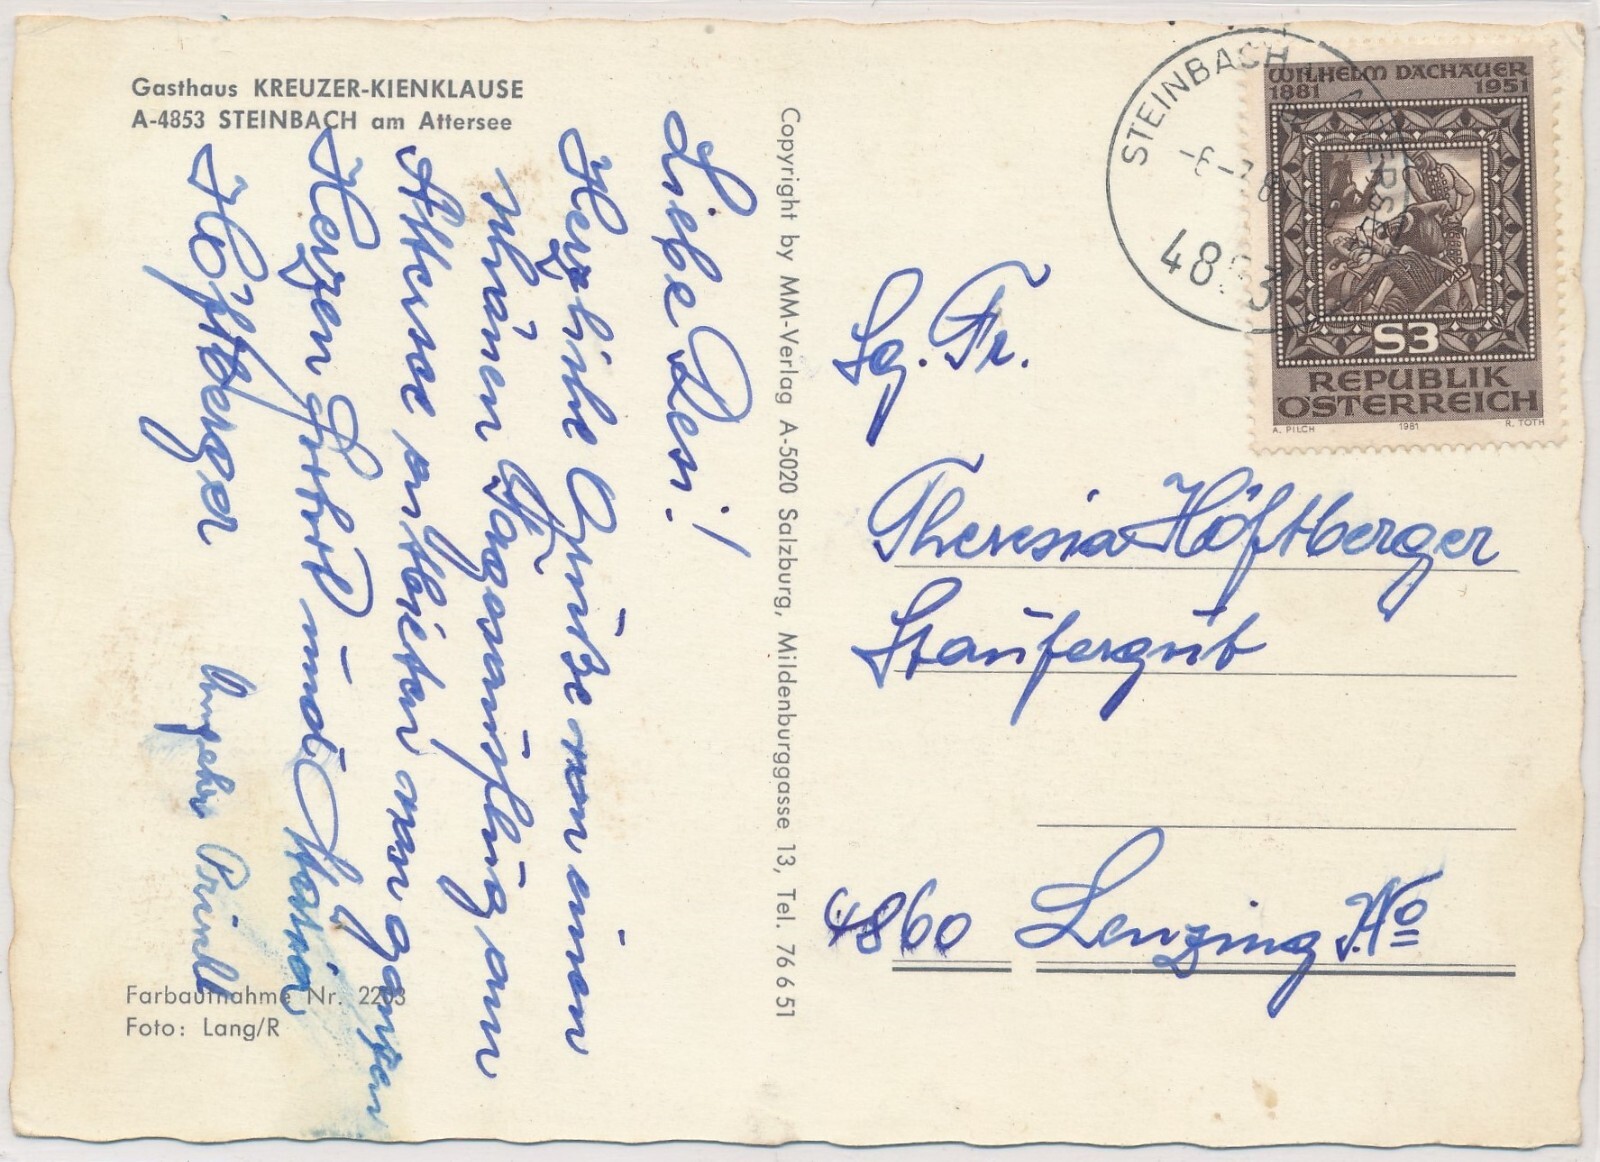 Gasthaus KREUZER-KIENKLAUSE
A-4853 STEINBACH am Attersee
Liebe Resi!
Herzliche Grüße von einen
schönen Tagesausflug am
Attersee entbieten von ganzen
Herzen Gotfrid und Maria
Höftberger
Farbaufnahme Nr. 2203
Foto: Lang/R
Copyright by MM-Verlag A-5020 Salzburg, Mildenburggasse 13, Tel. 76 6 51
STEINBACH
WILHELM DACHAUER
1881 1951
S3
REPUBLIK
ÖSTERREICH
A. PILCH 1981 R. TOTH
Sg. Fr.
Theresia Höftberger
Staufergut
4860 Lenzing